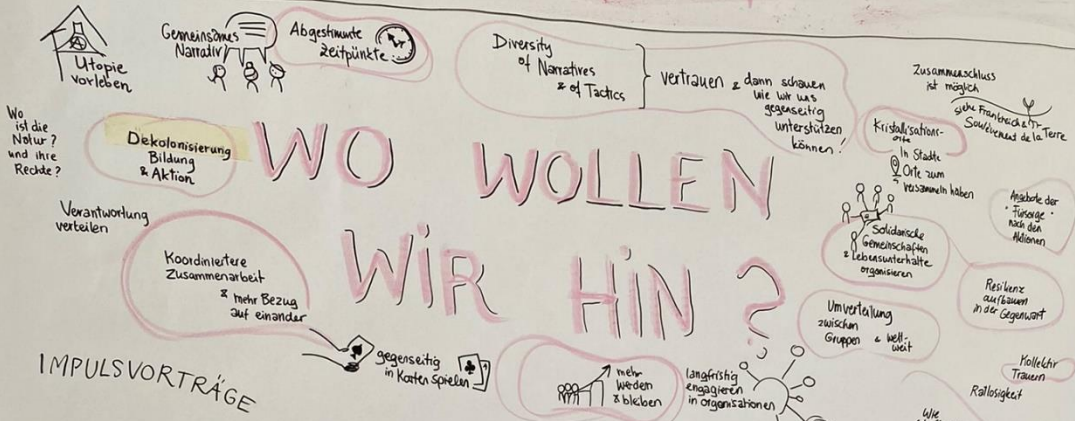 Utopie
vorleben
Gemeinsames
Narrativ
Abgestimmte
Zeitpünkte
Diversity
of Narratives
& of Tactics
vertrauen & dann schauen
wie wir uns
gegenseitig
unterstützen
können!
Zusammenschluss
ist möglich
siehe Frankreich &
Soulèvement de la Terre
Wo
ist die
Natur?
und ihre
Rechte?
Dekolonisierung
Bildung
& Aktion
WO WOLLEN
WIR HIN?
Kristallisations-
orte
In Städte
Orte zum
versammeln haben
Angebote der
Fürsorge
nach den
Aktionen
Verantwortung
verteilen
Koordiniertere
Zusammenarbeit
& mehr Bezug
auf einander
Solidarische
Gemeinschaften
& Lebensunterhalte
organisieren
Resilienz
aufbauen
in der Gegenwart
Umverteilung
zwischen
Gruppen & welt-
weit
gegenseitig
in Karten spielen
mehr
werden
& bleiben
langfristig
engagieren
in organisationen
Kollektiv
Trauern
Ratlosigkeit
Wie
IMPULSVORTRÄGE